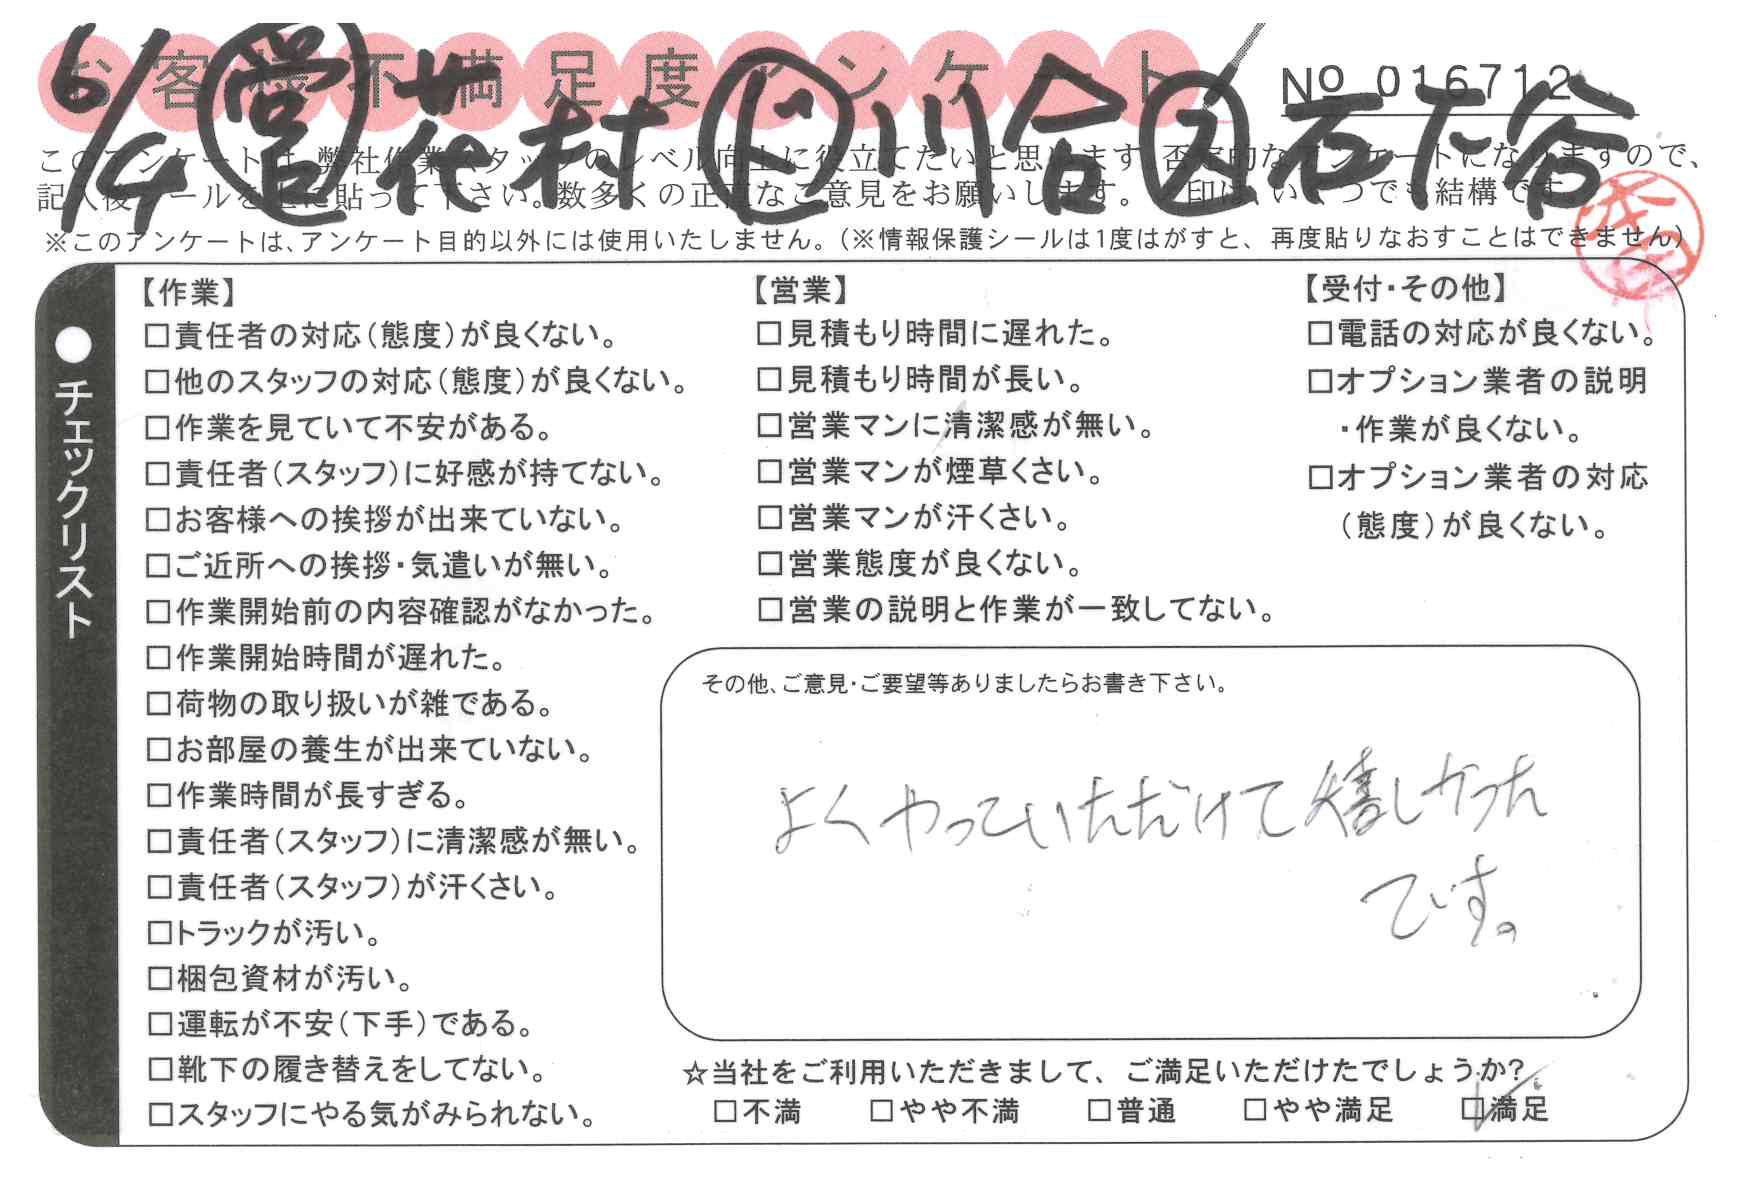 お客様不満足度アンケート
No 016712
6/4 営 花村 ビ 川合 ス 石下谷
このアンケートは、弊社作業スタッフのレベル向上に役立てたいと思います。否定的なアンケートになりますので、
記入後シールを上に貼って下さい。数多くの正直なご意見をお願いします。 印は、いくつでも結構です。
※このアンケートは、アンケート目的以外には使用いたしません。(※情報保護シールは1度はがすと、再度貼りなおすことはできません)
●チェックリスト
【作業】
□責任者の対応(態度)が良くない。
□他のスタッフの対応(態度)が良くない。
□作業を見ていて不安がある。
□責任者(スタッフ)に好感が持てない。
□お客様への挨拶が出来ていない。
□ご近所への挨拶・気遣いが無い。
□作業開始前の内容確認がなかった。
□作業開始時間が遅れた。
□荷物の取り扱いが雑である。
□お部屋の養生が出来ていない。
□作業時間が長すぎる。
□責任者(スタッフ)に清潔感が無い。
□責任者(スタッフ)が汗くさい。
□トラックが汚い。
□梱包資材が汚い。
□運転が不安(下手)である。
□靴下の履き替えをしてない。
□スタッフにやる気がみられない。
【営業】
□見積もり時間に遅れた。
□見積もり時間が長い。
□営業マンに清潔感が無い。
□営業マンが煙草くさい。
□営業マンが汗くさい。
□営業態度が良くない。
□営業の説明と作業が一致してない。
【受付・その他】
□電話の対応が良くない。
□オプション業者の説明
・作業が良くない。
□オプション業者の対応
(態度)が良くない。
その他、ご意見・ご要望等ありましたらお書き下さい。
よくやっていただけて嬉しかった
です。
☆当社をご利用いただきまして、ご満足いただけたでしょうか?
□不満 □やや不満 □普通 □やや満足 ☑満足